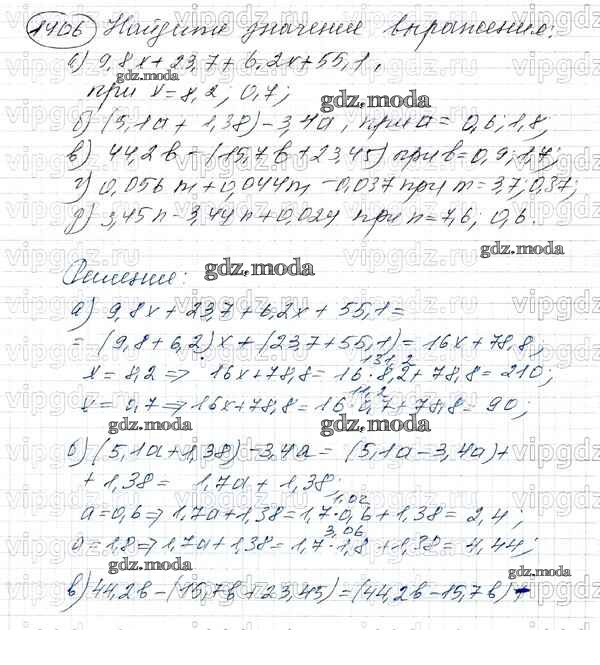 1406 Найдите значение выражения:
а) 9,8x + 23,7 + 6,2x + 55,1,
gdz.moda
при x = 8,2; 0,7;
gdz.moda
б) (5,1a + 1,38) - 3,4a, при a = 0,6; 1,8;
в) 44,2b - (15,7b + 23,45) при b = 0,9; 1,7;
г) 0,056m + 0,044m - 0,037 при m = 3,7; 0,37;
д) 3,45n - 3,44n + 0,024 при n = 7,6; 0,6.
gdz.moda
Решение:
gdz.moda
а) 9,8x + 23,7 + 6,2x + 55,1 =
= (9,8 + 6,2)x + (23,7 + 55,1) = 16x + 78,8;
131,2
x = 8,2 => 16x + 78,8 = 16 · 8,2 + 78,8 = 210;
11,2
x = 0,7 => 16x + 78,8 = 16 · 0,7 + 78,8 = 90;
gdz.moda gdz.moda
б) (5,1a + 1,38) - 3,4a = (5,1a - 3,4a) +
+ 1,38 = 1,7a + 1,38;
1,02
a = 0,6 => 1,7a + 1,38 = 1,7 · 0,6 + 1,38 = 2,4;
3,06
a = 1,8 => 1,7a + 1,38 = 1,7 · 1,8 + 1,38 = 4,44;
gdz.moda gdz.moda
в) 44,2b - (15,7b + 23,45) = (44,2b - 15,7b) +